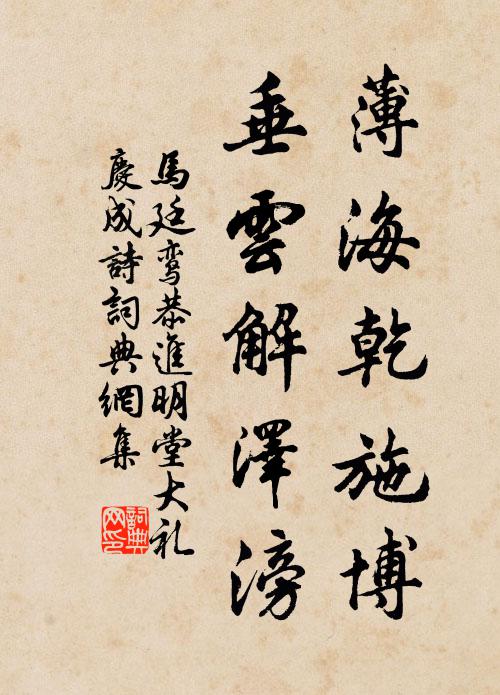 薄海乾施博
垂雲解澤滂
馬廷鸞恭進明堂大礼
慶成詩詞典網集
詞典网印